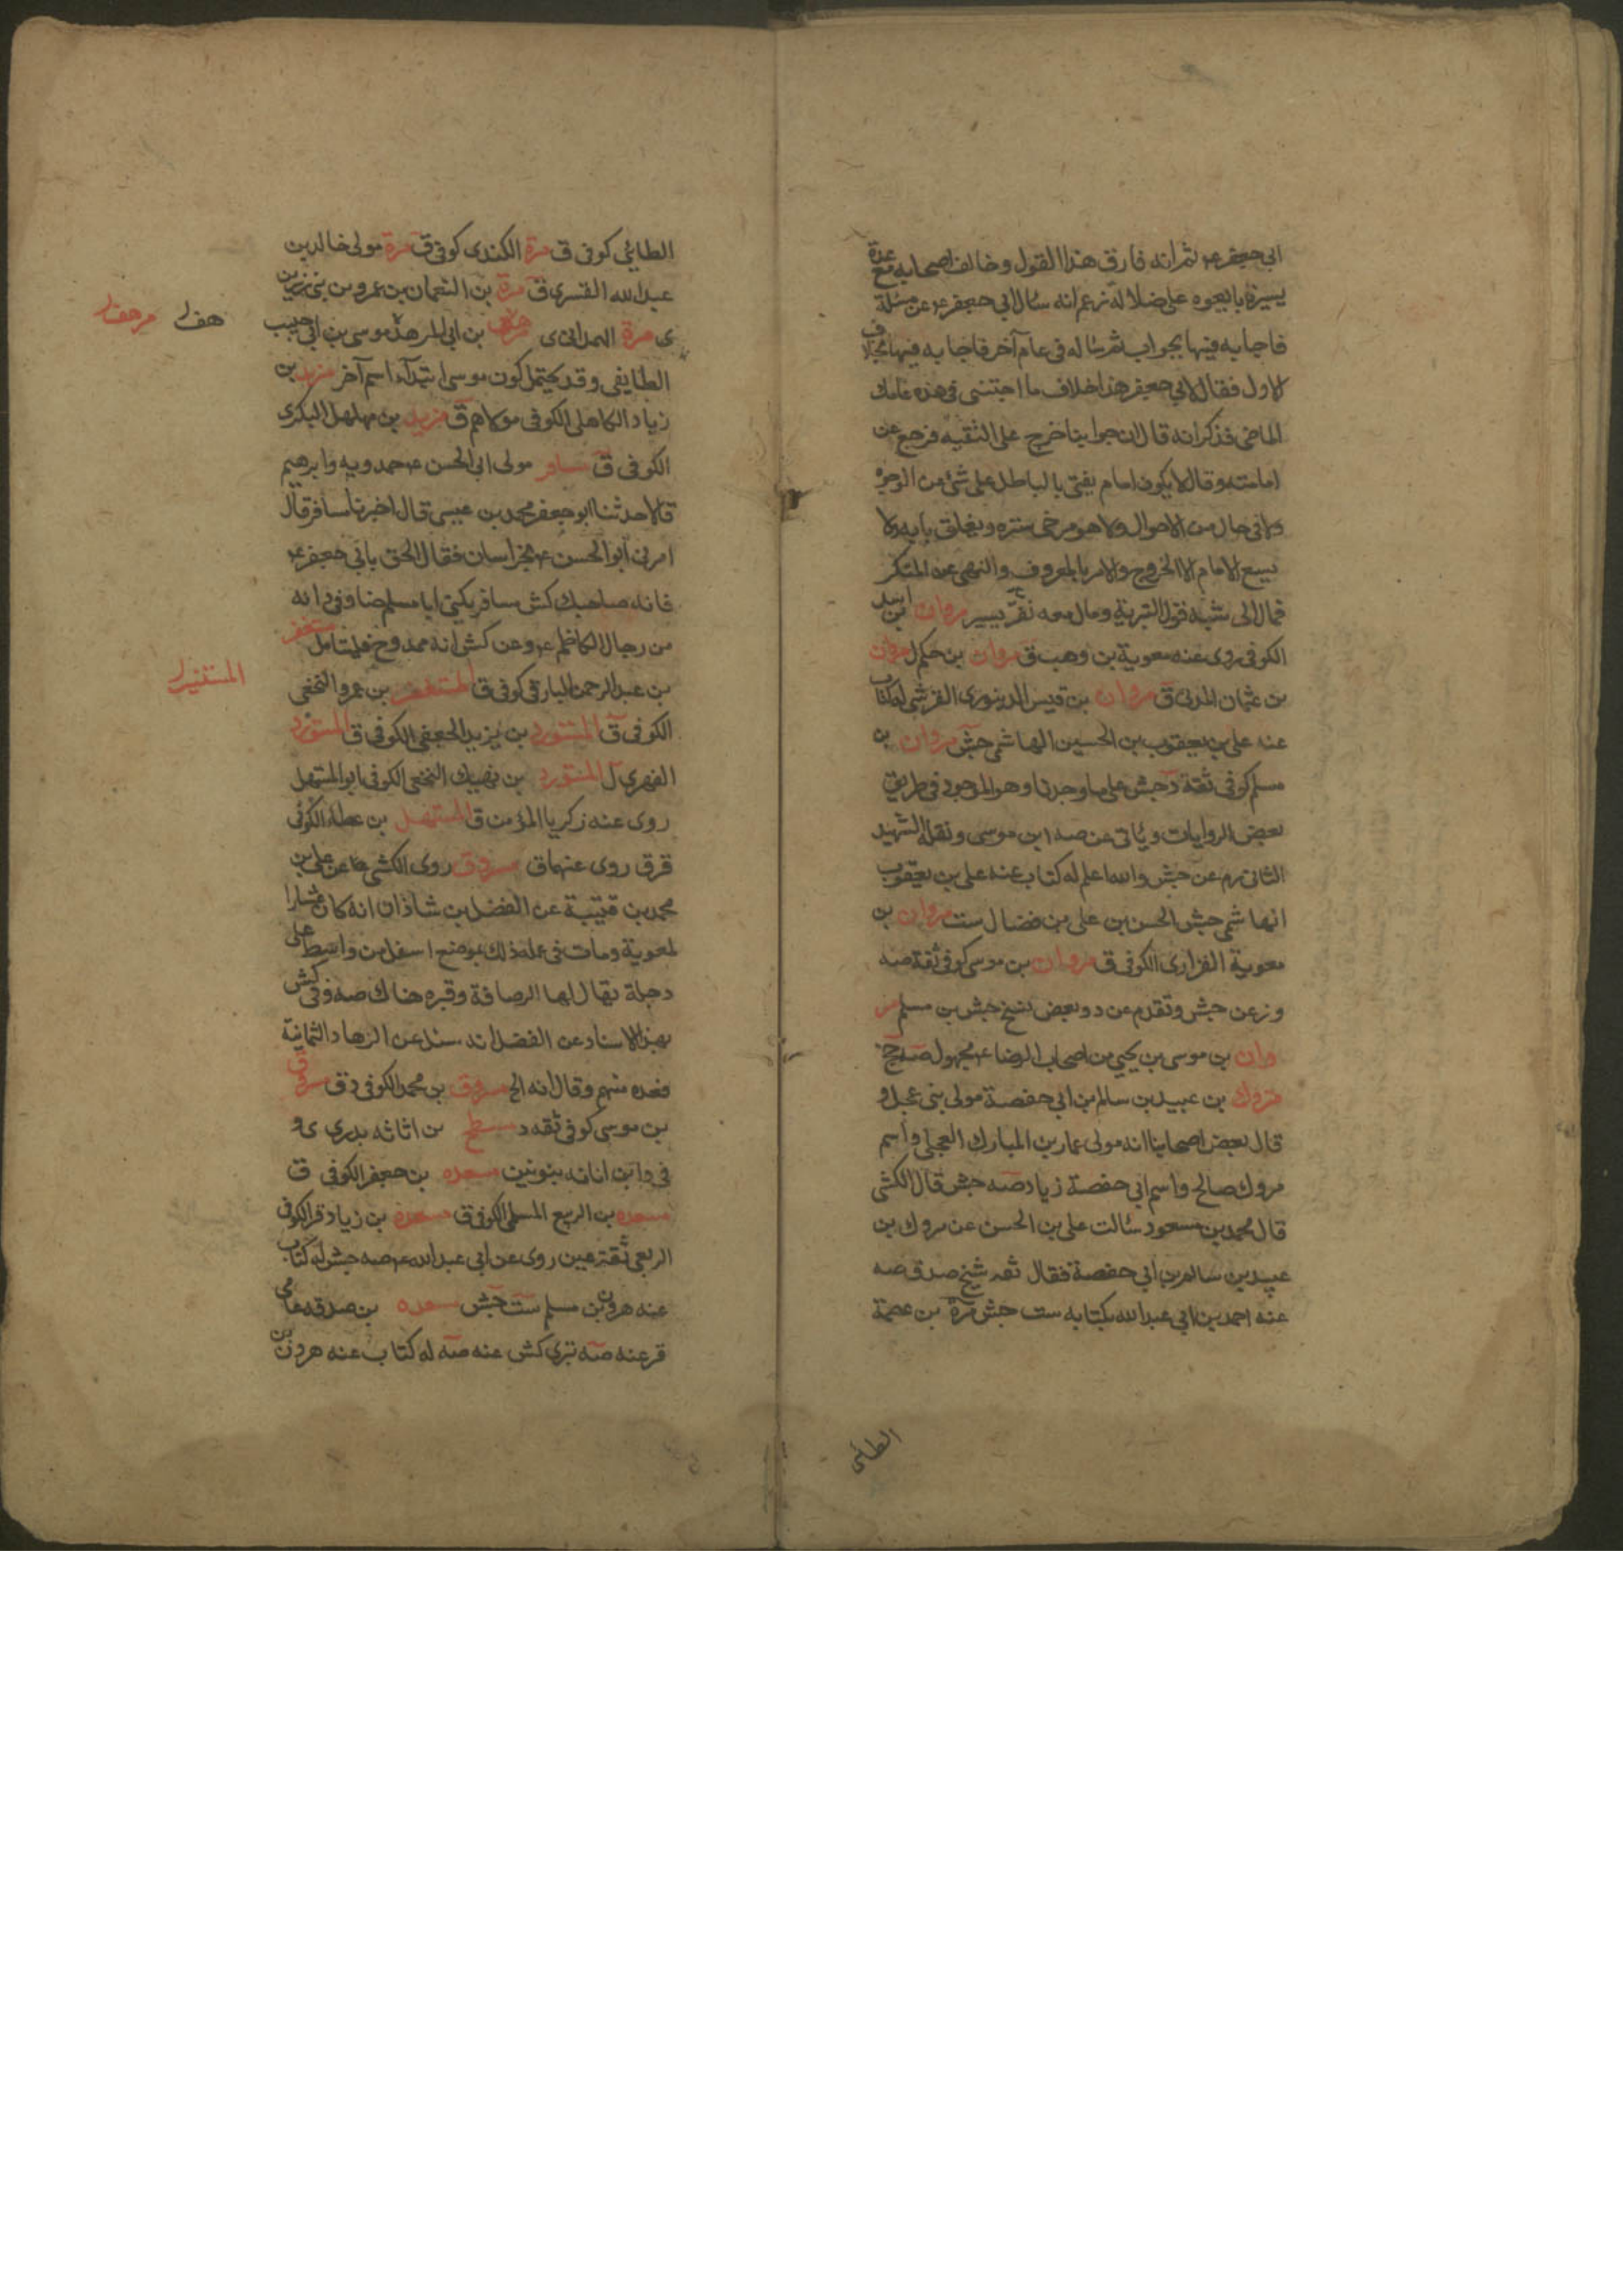 ابي جعفر ع ثم انه فارق هذا القول وخالف اصحابه مع عدة
يسيرة بايعوه على ضلالة زعم انه سال ابي جعفر ع عن مسئلة
فاجابه فيها بجواب ثم ساله في عام آخر فاجابه فيها بخلاف
لاول فقال لابي جعفر هذا خلاف ما اجتنى في هذه عامك
الماضي فذكر انه قال ان جوابنا خرج على التقيه فرجع عن
امامته وقال لا يكون امام يفتى بالباطل على شئ من الوجوه
ولا في حال من الاحوال ولا هو مرخى ستره ويغلق بابه ولا
يسع الامام الا الخروج والامر بالمعروف والنهى عن المنكر
فمال الى شبه قول البترية ومال معه نفر يسير مروان بن اسد
الكوفي روى عنه معوية بن وهب ق مروان بن حكم ل مروان
بن عثمان المدني ق مروان بن قيس الدينوري القرشي له كتاب
عنه علي بن يعقوب بن الحسين الهاشمي جش مروان بن
مسلم كوفي ثقة د جش على ما وجدنا وهو الموجود في طريق
بعض الروايات وياتي عن صه ابن موسى ونقله الشهيد
الثاني ره عن جش والله اعلم له كتاب عنه علي بن يعقوب
الهاشمي جش الحسن بن علي بن فضال ست مروان بن
معوية الفزاري الكوفي ق مروان بن موسى كوفي ثقة صه
وزعن جش وتقدم عن د وبعض نسخ جش بن مسلم مر
وان بن موسى بن يحيى من اصحاب الرضا ع مجهول صه ج
مروك بن عبيد بن سالم بن ابي حفصة مولى بني عجل و
قال بعض اصحابنا انه مولى عمار بن المبارك العجلي واسم
مروك صالح واسم ابي حفصة زياد صه جش قال الكشي
قال محمد بن مسعود سالت علي بن الحسن عن مروك بن
عبيد بن سالم بن ابي حفصة فقال ثقه شيخ صدوق صه
عنه احمد بن ابي عبد الله بكتابه ست جش مرة بن عصمة
الطائي
الطائي كوفي ق مرة الكندي كوفي ق مرة مولى خالد بن
عبد الله القسري ق مرة بن النعمان بن عمرو من بني
ي مرة الهمداني ي بن ابي المرهف موسى بن ابي حبيب
هف مرهف
الطايفي وقد يحتمل كون موسى ابتداء اسم آخر مزيد بن
زياد الكاهلي الكوفي مولاهم ق مزيد بن مهلهل البكري
الكوفي ق مسافر مولى ابي الحسن ع حمدويه وابرهيم
قالا حدثنا ابو جعفر محمد بن عيسى قال اخبرنا مسافر قال
امرني ابو الحسن ع بخراسان فقال الحق بابي جعفر ع
فانه صاحبك كش مسافر يكنى ابا مسلم ضا وفي د انه
من رجال الكاظم ع وعن كش انه ممدوح فليتامل
بن عبد الرحمن البارقي كوفي ق بن عمرو النخعي
المستنير
الكوفي ق المستورد بن يزيد الجعفي الكوفي ق المستورد
الفهري ل المستورد بن نهيك النخعي الكوفي ابو المستهل
روى عنه زكريا المؤمن ق المستهل بن عطاء الكوفي
قر ق روى عنهما ق مسروق روى الكشي ره عن علي بن
محمد بن قتيبة عن الفضل بن شاذان انه كان عشارا
لمعوية ومات في عمله ذلك بموضع اسفل من واسط على
دجلة يقال لها الرصافة وقبره هناك صه وفي كش
بهذا الاسناد عن الفضل انه سئل عن الزهاد الثمانية
فعده منهم وقال انه الخ مسروق بن محمد الكوفي ق مسروق
بن موسى كوفي ثقه د مسطح بن اثاثه بدري ي و
في د ابن انانه بنونين مسعده بن جعفر الكوفي ق
مسعده بن الربيع المسلي الكوفي ق مسعدة بن زياد قر الكوفي
الربعي ثقة عين روى عن ابي عبد الله ع صه جش له كتاب
عنه هرون بن مسلم ست جش مسعده بن صدقه عامي
قر عنه صه بتري كش عنه صه له كتاب عنه هرون بن